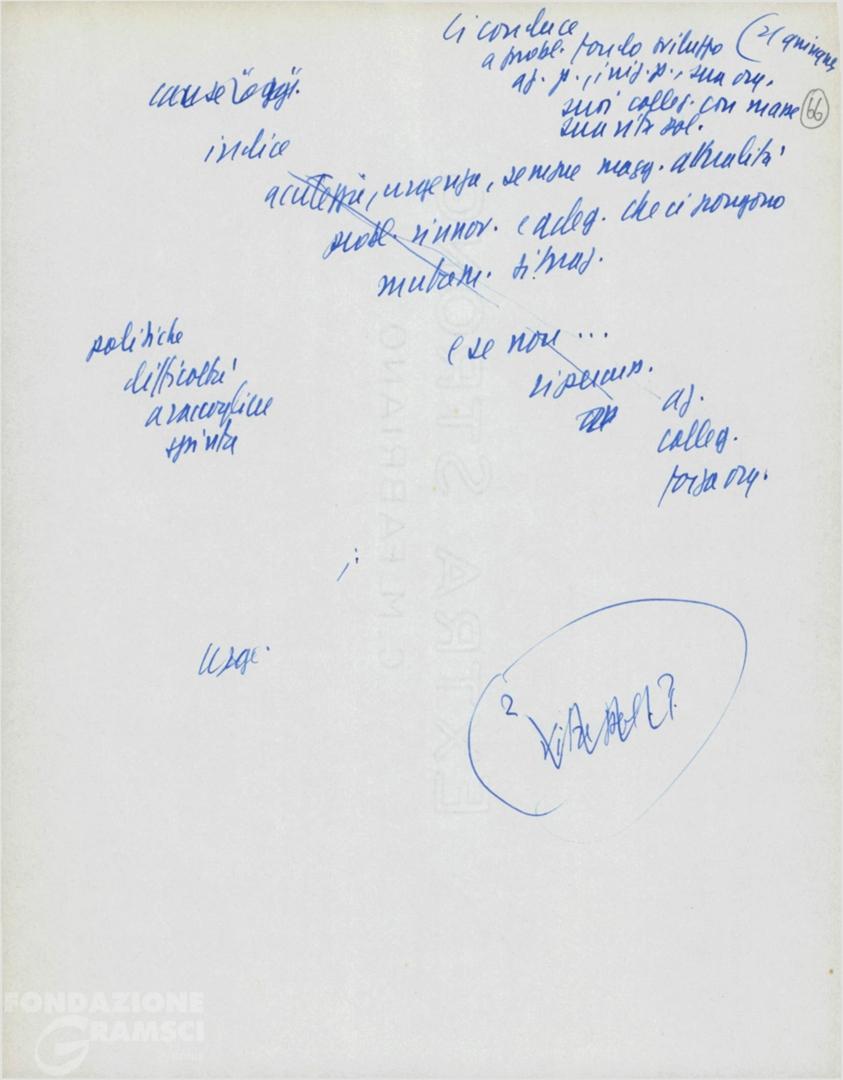 ci conduce
a probl. fondo sviluppo (
az. p., iniz. p., sua org.
suoi colleg. con masse
sua vita pol.
66
cause oggi.
indice
acutezza, urgenza, sempre magg. attualità
probl. rinnov. e adeg. che ci pongono
mutam. situaz.
e se non ...
politiche
difficoltà
a raccogliere
spinta
az.
colleg.
forza org.
;:
2
C. M. FABRIANO
EXTRA STRONG
FONDAZIONE
GRAMSCI